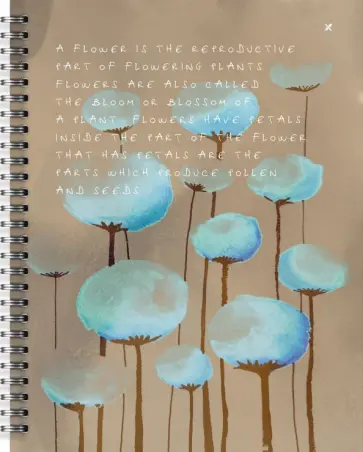 A FLOWER IS THE REPRODUCTIVE
PART OF FLOWERING PLANTS
FLOWERS ARE ALSO CALLED
THE BLOOM OR BLOSSOM OF
A PLANT. FLOWERS HAVE PETALS
INSIDE THE PART OF THE FLOWER
THAT HAS PETALS ARE THE
PARTS WHICH PRODUCE POLLEN
AND SEEDS